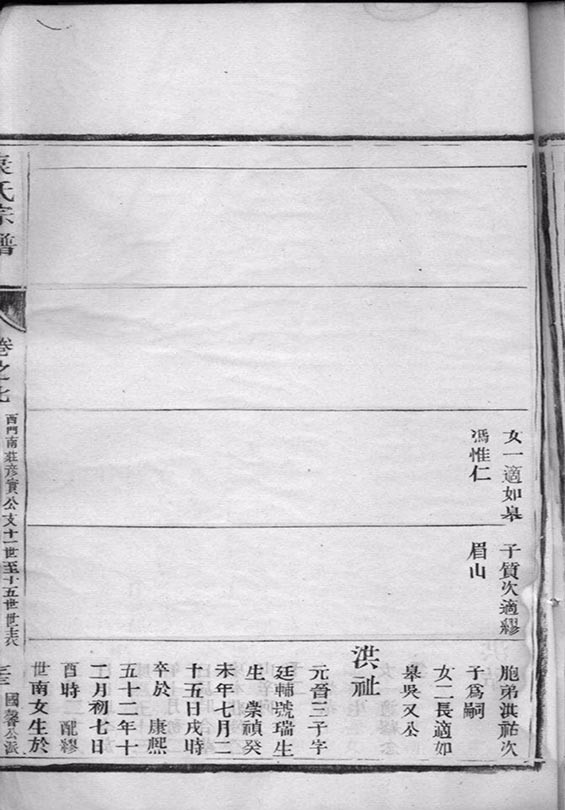 女一適如皋
馮惟仁
子質次適繆
眉山
胞弟洪祐次
子爲嗣
女二長適如
皋吳又公
洪祉
元晉三子字
廷輔號瑞生
生 崇禎癸
未年七月二
十五日戌時
卒於 康熙
五十二年十
二月初七日
酉時 配繆
世南女生於
袁氏宗譜
卷之七
西門南莊彥實公支十一世至十五世世表
三
國馨公派